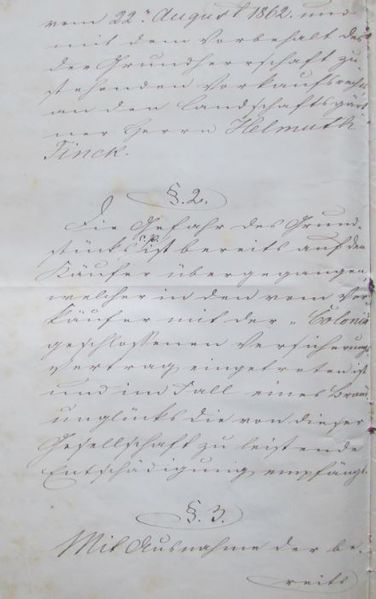 vom 22n August 1862. und
mit dem Vorbehalt des
der Grundherrschaft zu
stehenden Vorkaufsrechts
an den Landschaftsgärt
ner Herrn Helmuth
Tinck.
§. 2.
Die Gefahr des Grund-
stücks ist bereits auf den
Käufer übergegangen,
welcher in den vom Ver
käufer mit der "Colonia
geschlossenen Versicherungs
vertrag eingetreten ist
und im Fall eines Brand
unglücks die von dieser
Gesellschaft zu leistende
Entschädigung empfängt.
§. 3.
Mit Ausnahme der be-
reits